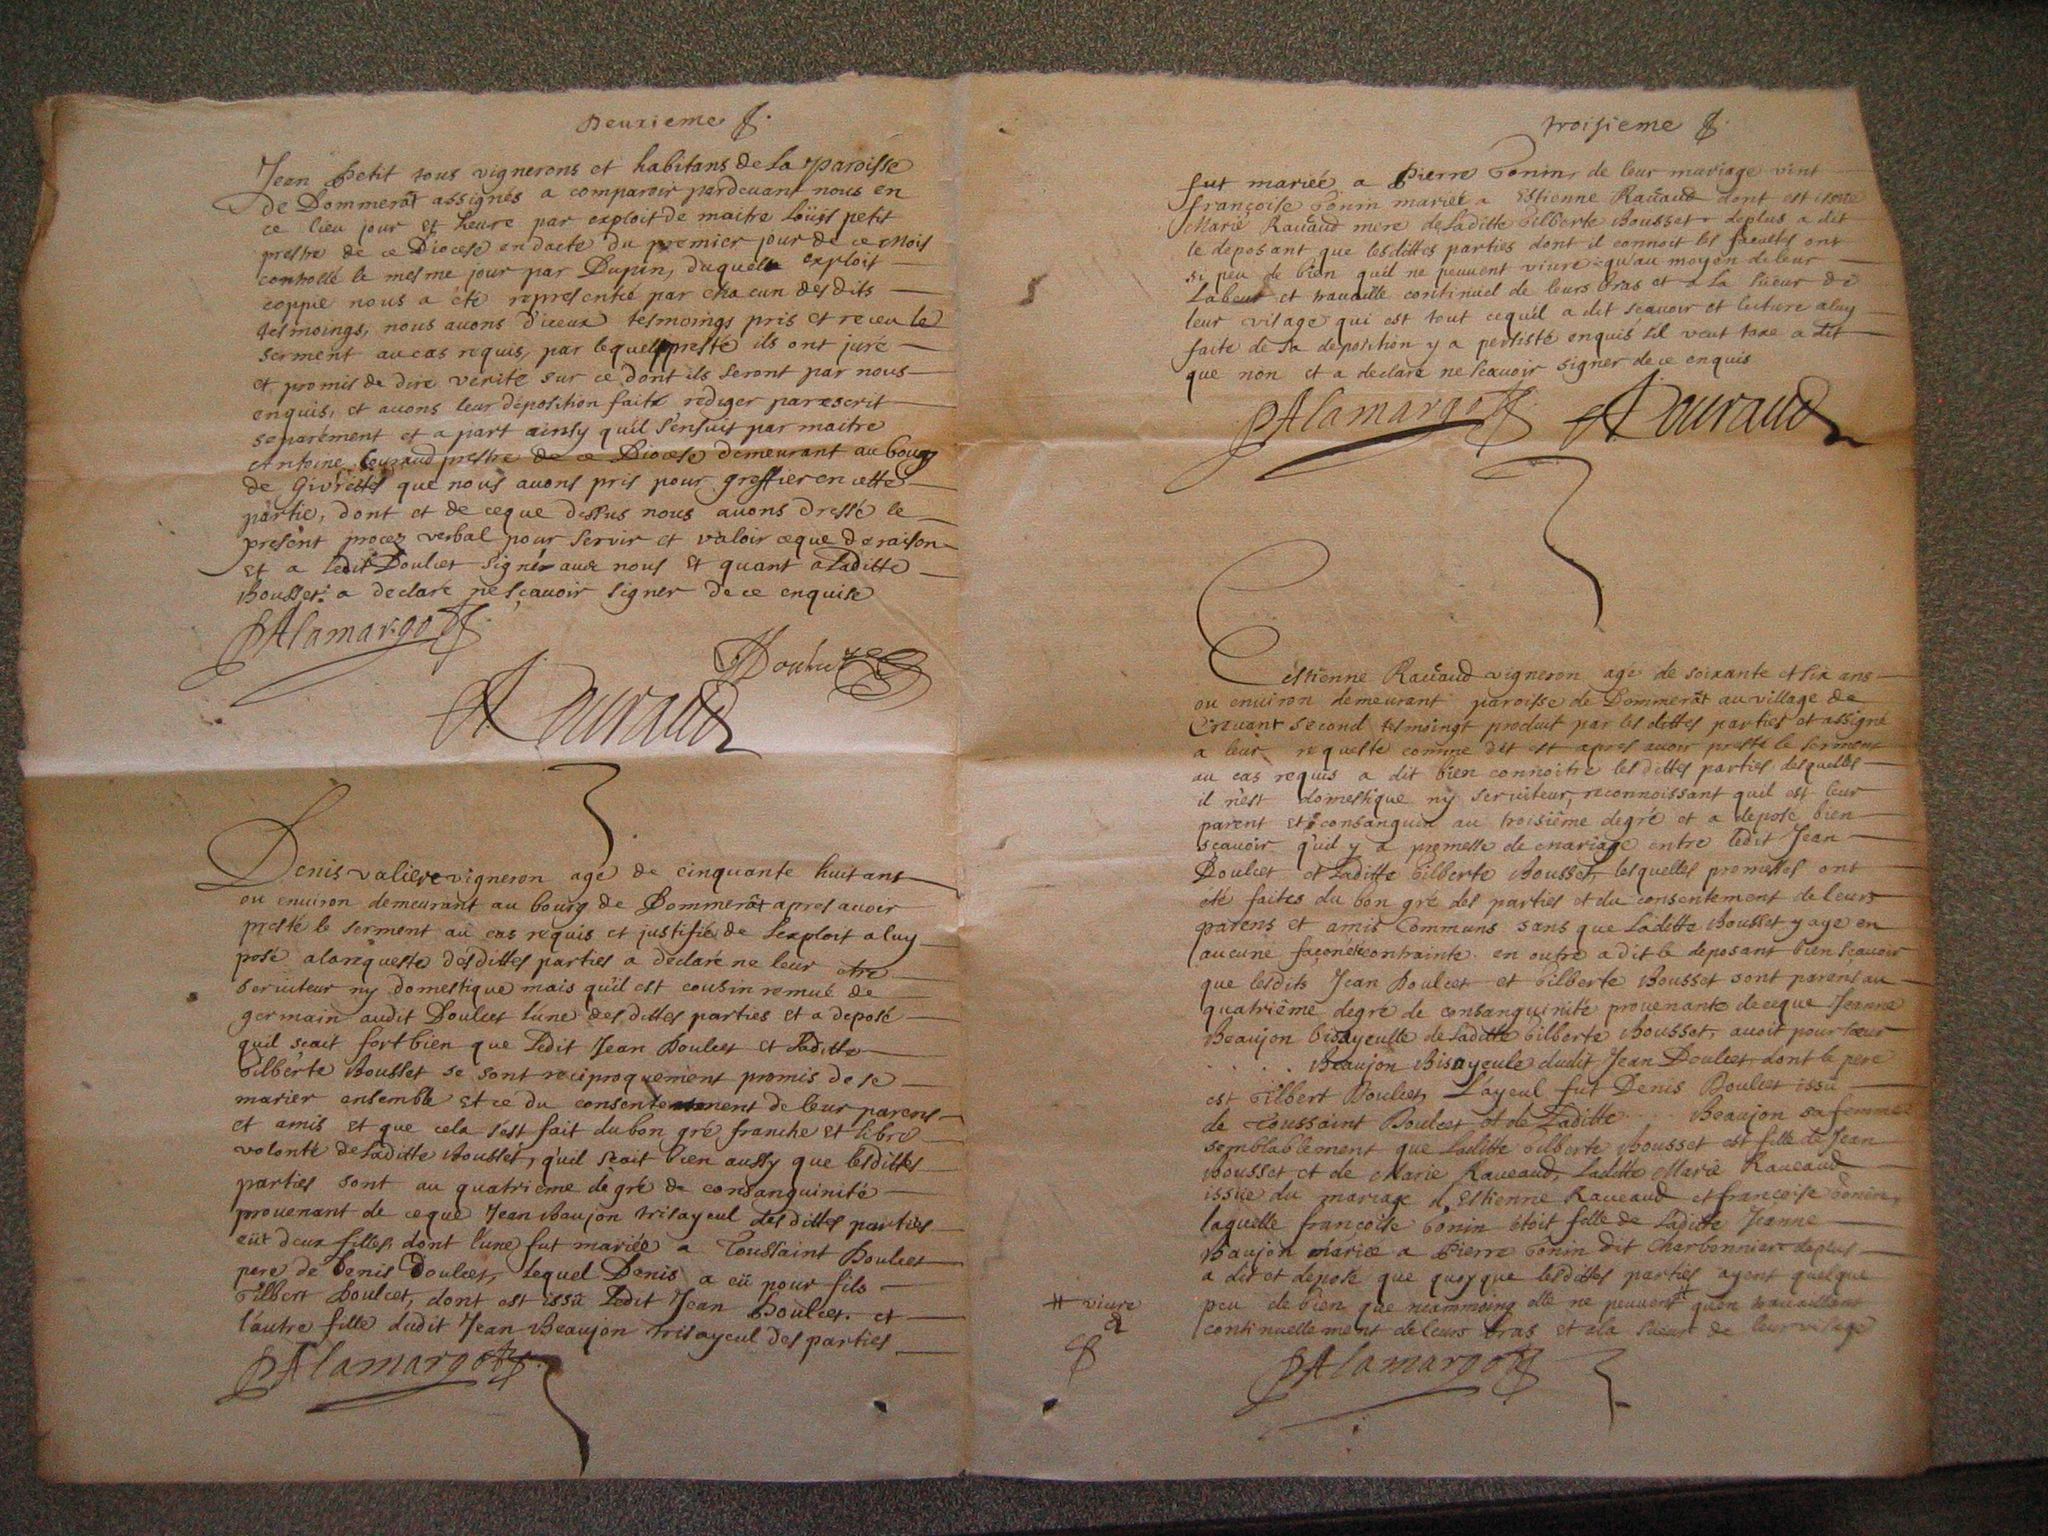 Deuxieme
Jean Petit tous vignerons et habitans de La Paroisse
de Dommerât assignés a comparoir pardeuant nous en
ce lieu jour et heure par exploit de maitre Loüis petit
prestre de ce Diocese en dacte du premier jour de ce mois
controllé le mesme jour par Dupin, duquel exploit
coppie nous a été representée par chacun desdits
tesmoings, nous auons d'iceux tesmoings pris et receu le
serment au cas requis, par lequel presté ils ont juré
et promis de dire verité sur ce dont ils seront par nous
enquis, et auons leur déposition faite rediger par escrit
separément et a part ainsy qu'il s'ensuit par maitre
Antoine Couraud prestre de ce Diocese demeurant au bourg
de Givrettes que nous auons pris pour greffier en cette
partie, dont et de ce que dessus nous auons dressé le
present procez verbal pour servir et valoir ce que de raison
Et a Ledit Doulcet signé auec nous Et quant a Laditte
Bousset a declaré ne sçauoir signer de ce enquise
PAlamargot
Doulcet
A Couraud
Denis valiere vigneron agé de cinquante huit ans
ou environ demeurant au bourg de Dommerât apres auoir
presté le serment au cas requis et justifié de l'exploit a luy
posé a la requeste desdittes parties a declaré ne leur etre
seruiteur ny domestique mais qu'il est cousin remué de
germain audit Doulcet l'une desdittes parties et a deposé
quil scait fort bien que Ledit Jean Doulcet et Laditte
Gilberte Bousset se sont reciproquement promis de se
marier ensemble et ce du consentement de leur parens
et amis et que cela s'est fait du bon gré franche et libre
volonté de Laditte Bousset, qu'il scait bien aussy que lesdittes
parties sont au quatrieme degré de consanguinité
prouenant de ce que Jean Baujon trisayeul desdittes parties
eüt deux filles dont l'une fut mariée a Toussaint Doulcet
pere de Denis Doulcet, lequel Denis a eü pour fils
Gilbert Doulcet, dont est issu Ledit Jean Doulcet, et
l'autre fille dudit Jean Beaujon trisayeul des parties
PAlamargot
troisieme
fut mariée a Pierre Tonin, de leur mariage vint
françoise Tonin mariée a Estienne Raüaud dont est issue
Marie Raüaud mere de Laditte Gilberte Bousset deplus a dit
le deposant que lesdittes parties dont il connoit les facultés ont
si peu de bien quil ne peuuent viure qu'au moyen de leur
Labeur et trauaille continuel de leurs bras et a La sueur de
leur visage qui est tout cequil a dit scauoir et lecture a luy
faite de sa deposition y a persisté enquis sil veut taxe a dit
que non et a declaré ne scauoir signer de ce enquis
PAlamargot A Couraud
Estienne Raüaud vigneron agé de soixante et six ans
ou enuiron demeurant paroisse de Dommerât au village de
Creuant second tesmoingt produit par les dittes parties et assigné
a leur requeste comme dit est apres auoir presté le serment
au cas requis a dit bien connoitre lesdittes parties desquelles
il n'est domestique ny seruiteur, reconnoissant quil est leur
parent et consanguin au troisiême degré et a deposé bien
scauoir qu'il y a promesse de mariage entre ledit Jean
Doulcet et Laditte Gilberte Bousset, lesquelles promesses ont
été faites du bon gré des parties et du consentement de leurs
parens et amis communs sans que Laditte Bousset y aye en
aucune façon été contrainte. en outre a dit le deposant bien scauoir
que lesdits Jean Doulcet et Gilberte Bousset sont parens au
quatriême degré de consanguinité prouenante de ceque Jeanne
Beaujon bisayeulle de Laditte Gilberte Bousset, auoit pour soeur
. . . . . Beaujon Bisayeule dudit Jean Doulcet, dont le pere
est Gilbert Doulcet, L'ayeul fut Denis Doulcet issû
de Toussaint Doulcet et de Laditte . . . . Beaujon sa femme
semblablement que Laditte Gilberte Bousset est fille de Jean
Bousset et de Marie Raueaud, Laditte Marie Raueaud
issüe du mariage d'Estienne Raueaud et françoise Tonin,
laquelle françoise Tonin étoit fille de Laditte Jeanne
Baujon mariée a Pierre Tonin dit Charbonnier deplus
a dit et deposé que quoyque lesdittes parties ayent quelque
peu de bien que neammoing elle ne peuuent # qu'en trauaillant
# viure
continuellement de leurs bras et a la sueur de leur visage
PAlamargot